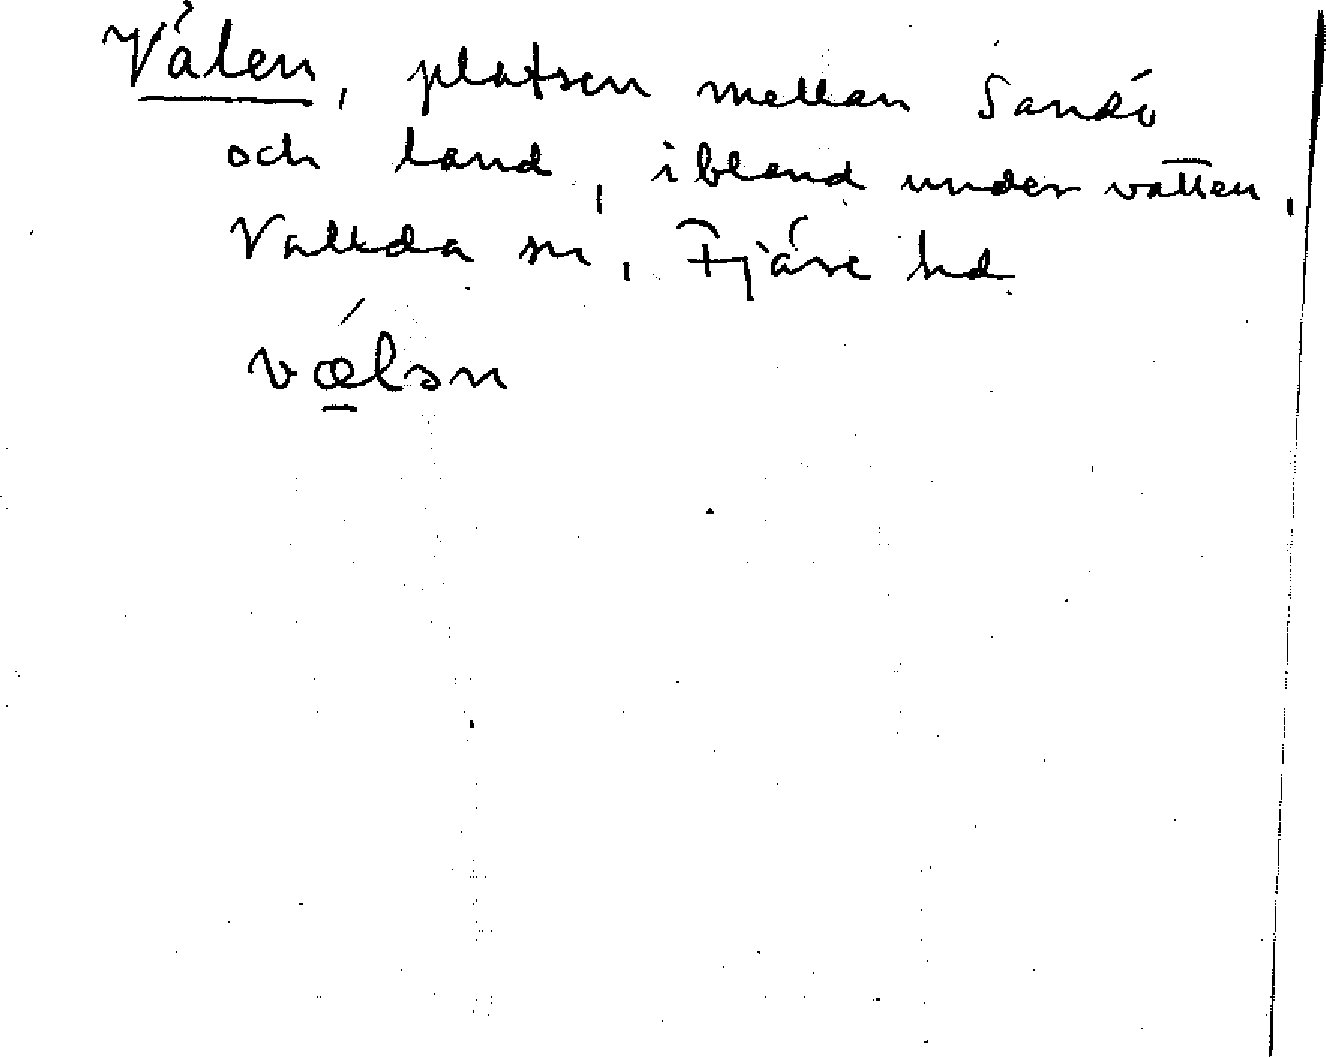 Välen, platsen mellan Sandö
och land, ibland under vatten.
Vallda sn, Fjäre hd
vǽ̱lən